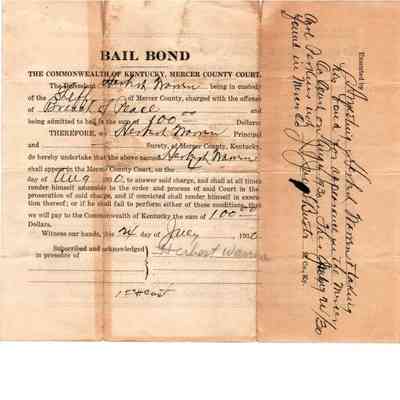 BAIL BOND
THE COMMONWEALTH OF KENTUCKY, MERCER COUNTY COURT.
The Defendant Herbert Warren being in custody
of the Sheff of Mercer County, charged with the offense
of Breach of Peace and
being admitted to bail in the sum of 100.00 Dollars
THEREFORE, we Herbert Warren Principal
and Surety, of Mercer County, Kentucky,
do hereby undertake that the above named Herbert Warren
shall appear in the Mercer County Court, on the
day of Aug 1930, to answer said charge, and shall at all times
render himself amenable to the order and process of said Court in the
prosecution of said charge, and if convicted shall render himself in execu
tion thereof; or if he shall fail to perform either of these conditions, that
we will pay to the Commonwealth of Kentucky the sum of 100.00
Dollars.
Witness our hands, this day of 1930
Subscribed and acknowledged
in presence of
Herbert Warren
Executed by
Arresting Herbert Warren & taking
his bond for appearance in the Mercer
Co Court on Aug This
found in Mercer Co
S. M. Co. Ky.